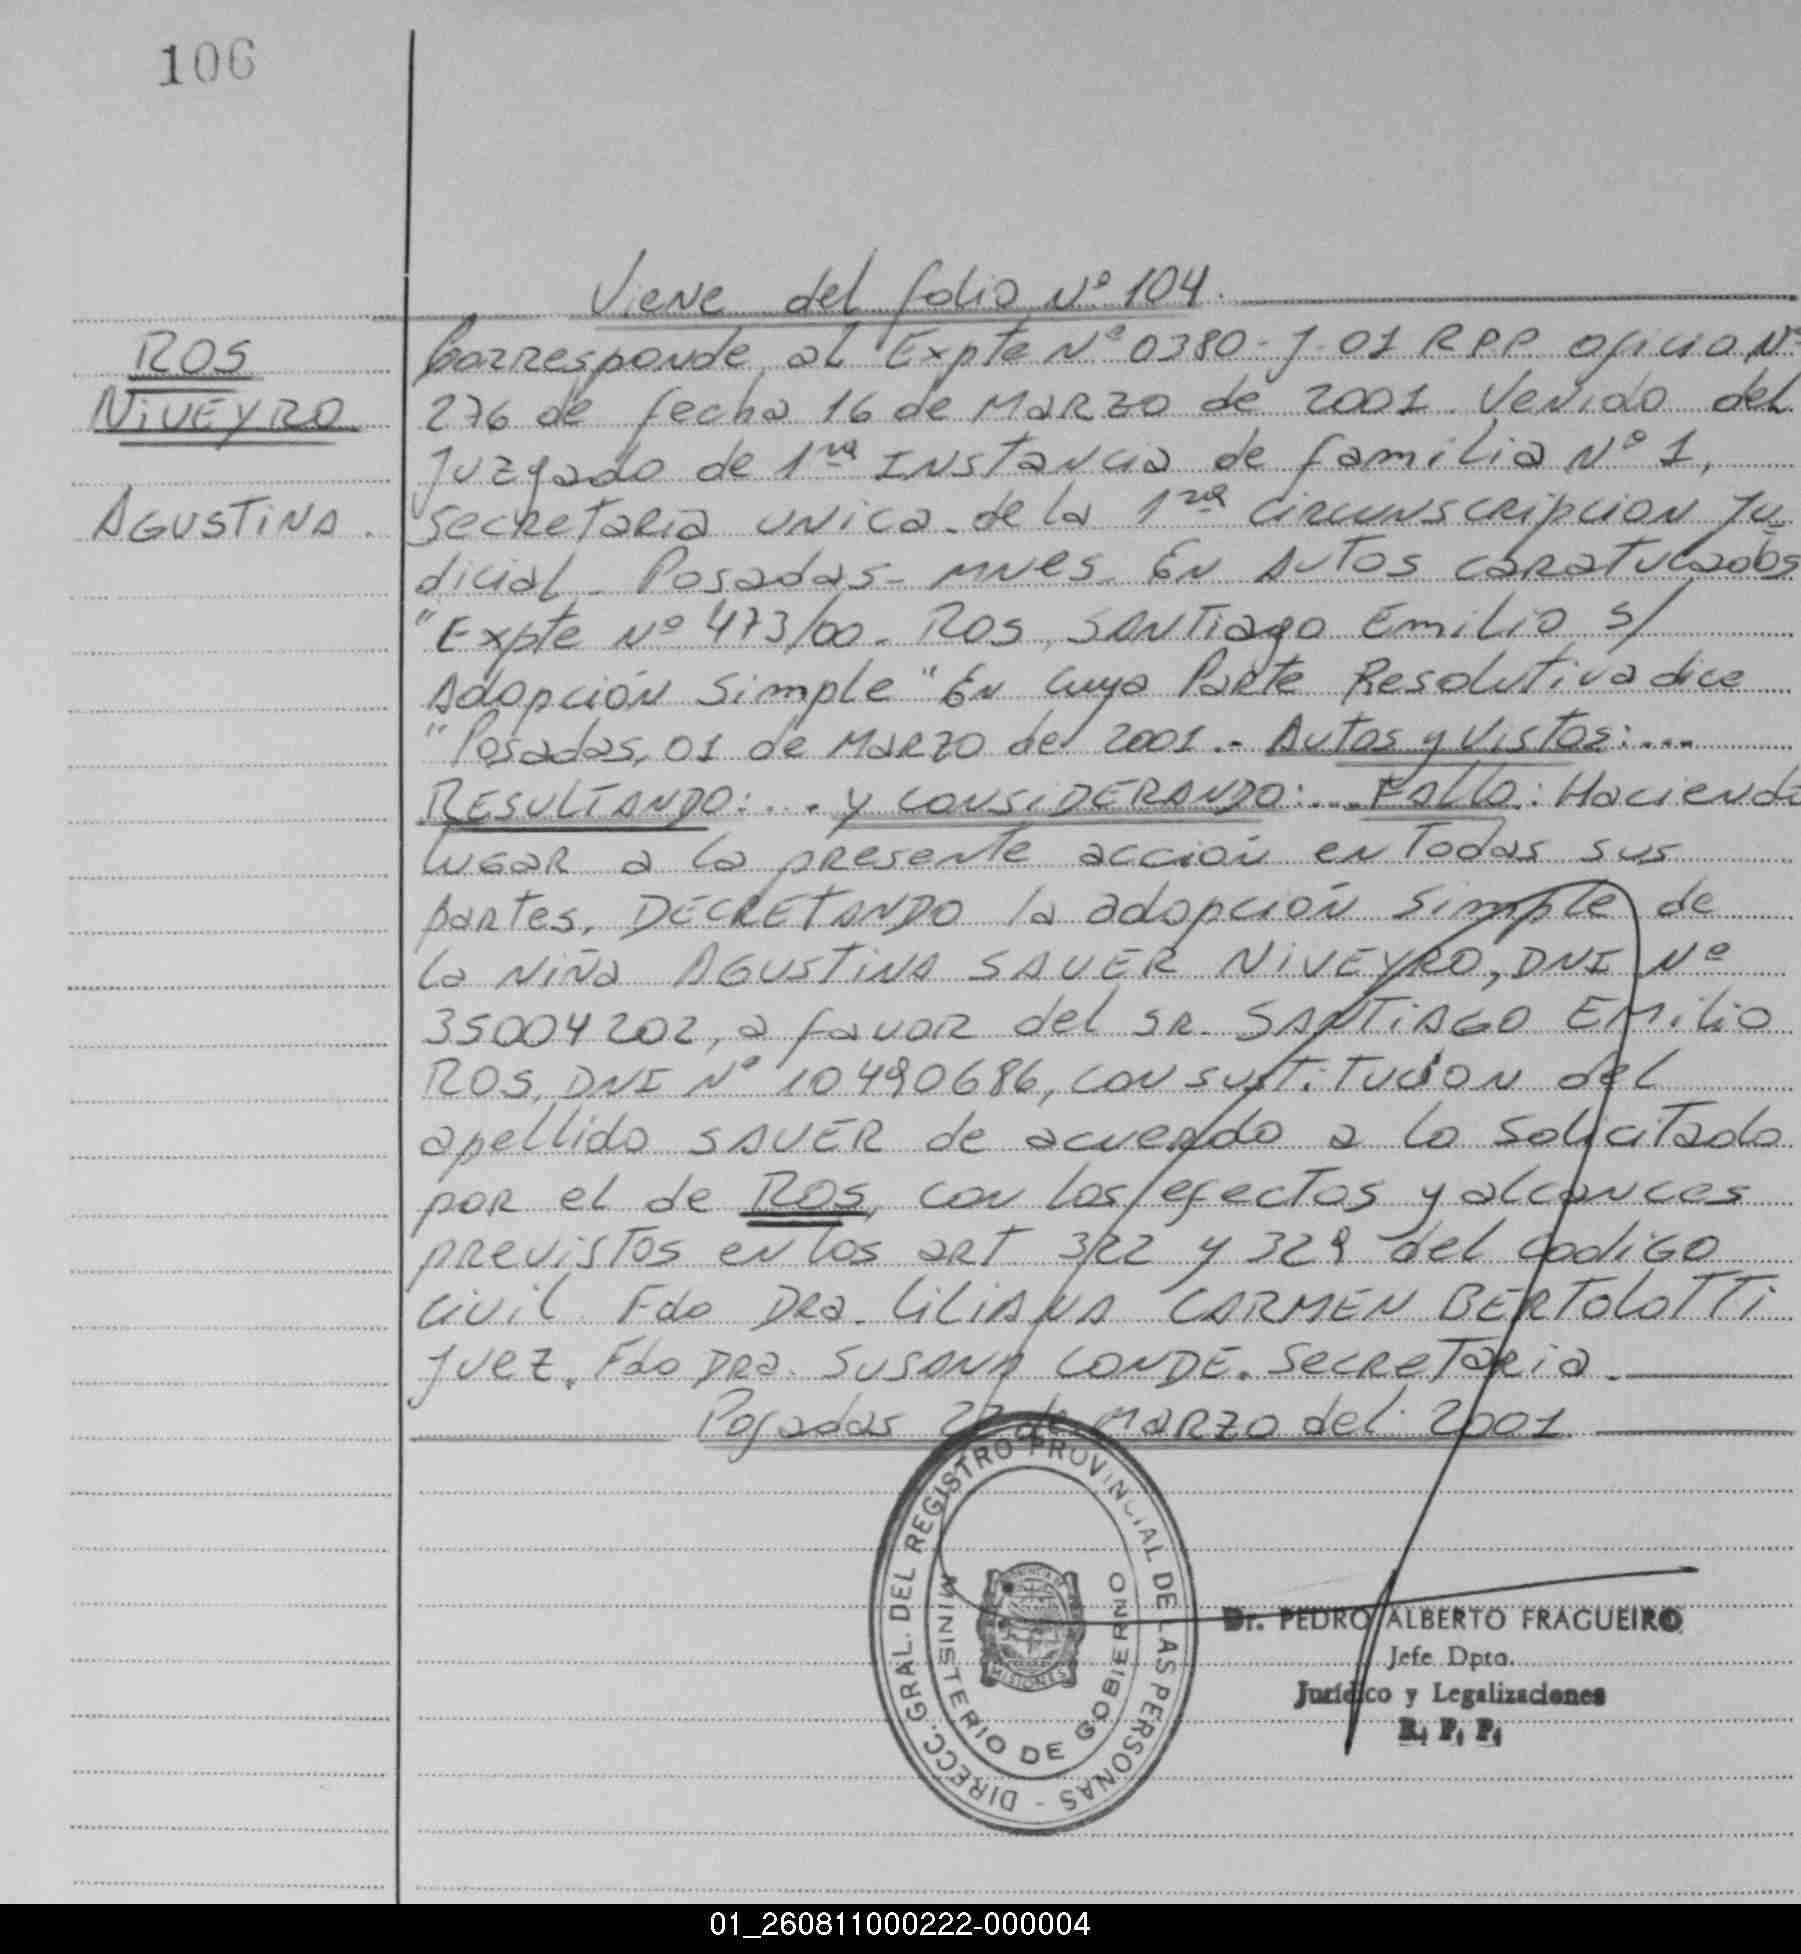 106
Viene del folio Nº 104.
ROS
NIVEYRO
AGUSTINA.
Corresponde al Expte Nº 0380-J-01 R.P.P. oficio Nº
276 de fecha 16 de MARZO de 2001. Venido del
Juzgado de 1ra INstaNcia de familia Nº 1,
Secretaria UNica de la 1ra circunscripcion Ju-
dicial. Posadas - MNES. EN AUTOS caratulados
"Expte Nº 473/00. ROS, SANTiago Emilio s/
Adopción Simple" EN cuya Parte Resolutiva dice
"Posadas, 01 de MARZO del 2001.- Autos y Vistos:...
RESULTANDO:... y CONSIDERANDO:... FALLO: Haciendo
lugar a la presente acción en Todas sus
partes, DECRETANDO la adopción Simple de
la Niña AGUSTINA SAUER NIVEYRO, DNI Nº
35004202, a favor del SR. SANTIAGO EMILIO
ROS, DNI Nº 10490686, con sustiTución del
apellido SAUER de acuerdo a lo SoliciTado
por el de ROS, con los efectos y alcances
previstos en los art 322 y 329 del codigo
civil. Fdo DRA. LILIANA CARMEN BERTOLOTTI
JUEZ. Fdo DRA. SUSANA CONDE. SecreTaria.
Posadas 27 de MARZO del 2001.
DIRECC. GRAL. DEL REGISTRO PROVINCIAL DE LAS PERSONAS -
MINISTERIO DE GOBIERNO
PROVINCIA DE
MISIONES
Dr. PEDRO ALBERTO FRAGUEIRO
Jefe Dpto.
Jurídico y Legalizaciones
R. P. P.
01_260811000222-000004